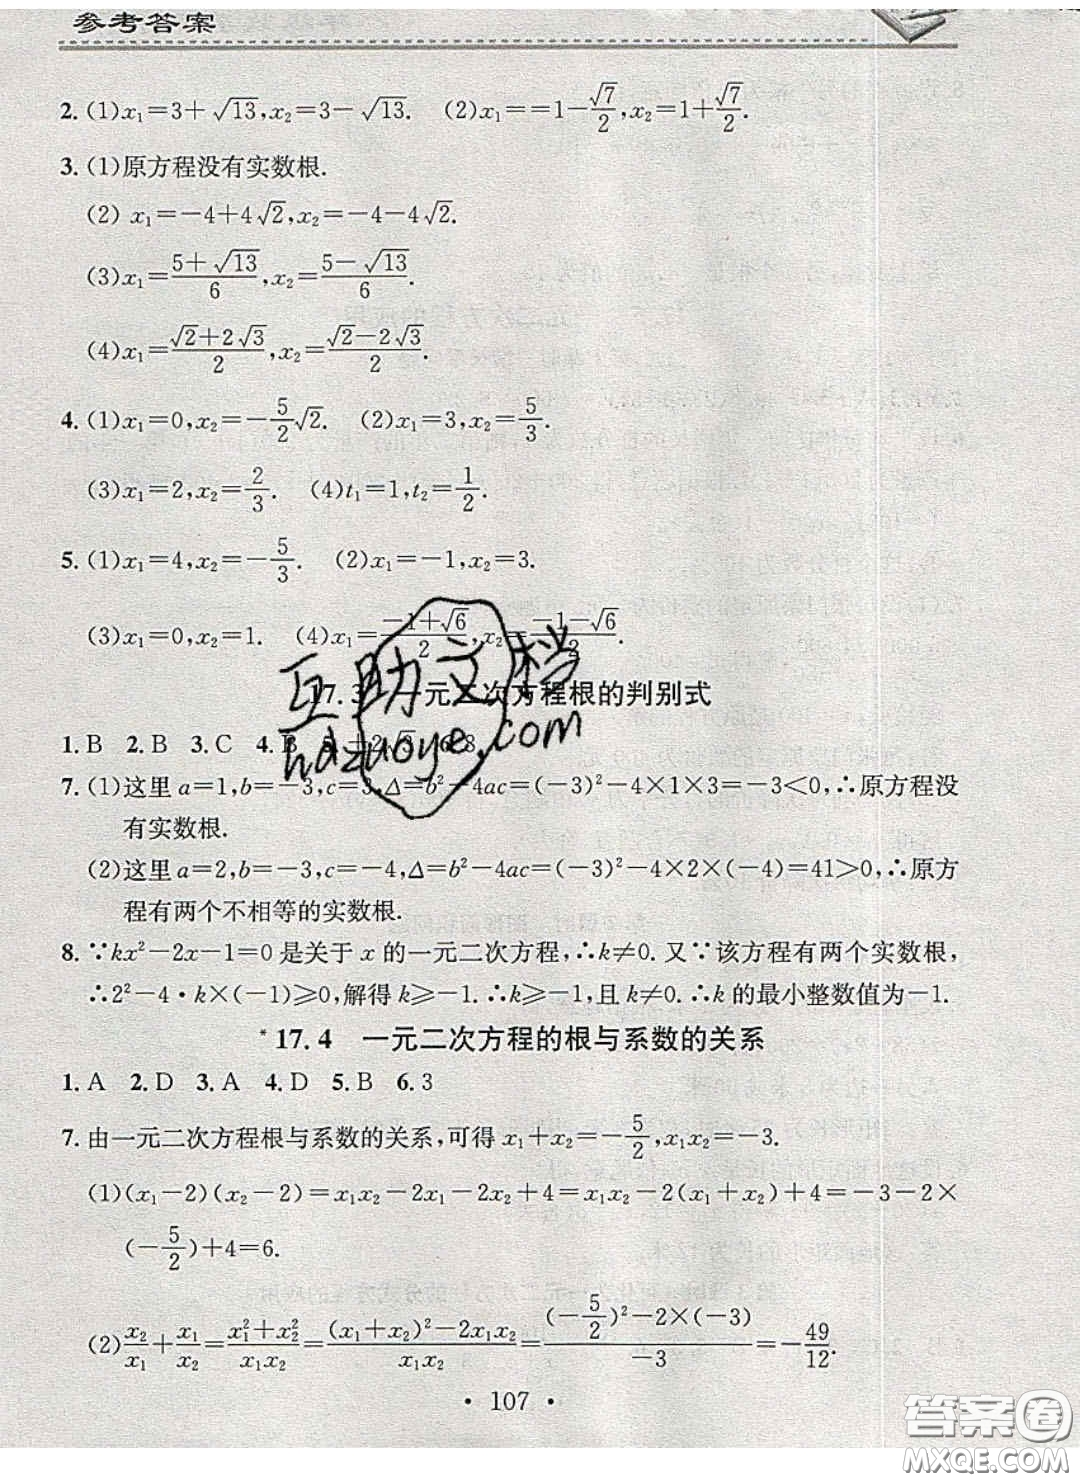 参考答案
2. (1)x₁=3+√13,x₂=3-√13. (2)x₁==1-√7/2,x₂=1+√7/2.
3. (1)原方程没有实数根.
(2) x₁=-4+4√2,x₂=-4-4√2.
(3)x₁=(5+√13)/6,x₂=(5-√13)/6.
(4)x₁=(√2+2√3)/2,x₂=(√2-2√3)/2.
4. (1)x₁=0,x₂=-5/2√2. (2)x₁=3,x₂=5/3.
(3)x₁=2,x₂=2/3. (4)t₁=1,t₂=1/2.
5. (1)x₁=4,x₂=-5/3. (2)x₁=-1,x₂=3.
(3)x₁=0,x₂=1. (4)x₁=(-1+√6)/2,x₂=(-1-√6)/2.
互助文档
17.3 一元二次方程根的判别式
hdzuoye.com
1. B 2. B 3. C 4. B 5. 2√3 6.
7. (1)这里a=1,b=-3,c=3,Δ=b²-4ac=(-3)²-4×1×3=-3<0,∴原方程没
有实数根.
(2)这里a=2,b=-3,c=-4,Δ=b²-4ac=(-3)²-4×2×(-4)=41>0,∴原方
程有两个不相等的实数根.
8. ∵kx²-2x-1=0是关于x的一元二次方程,∴k≠0. 又∵该方程有两个实数根,
∴2²-4·k×(-1)≥0,解得k≥-1. ∴k≥-1,且k≠0. ∴k的最小整数值为-1.
*17.4 一元二次方程的根与系数的关系
1. A 2. D 3. A 4. D 5. B 6. 3
7. 由一元二次方程根与系数的关系,可得x₁+x₂=-5/2,x₁x₂=-3.
(1)(x₁-2)(x₂-2)=x₁x₂-2x₁-2x₂+4=x₁x₂-2(x₁+x₂)+4=-3-2×
(-5/2)+4=6.
(2)x₂/x₁+x₁/x₂=(x₁²+x₂²)/x₁x₂=((x₁+x₂)²-2x₁x₂)/x₁x₂=((-5/2)²-2×(-3))/-3=-49/12.
· 107 ·
答案圈
MXQE.COM